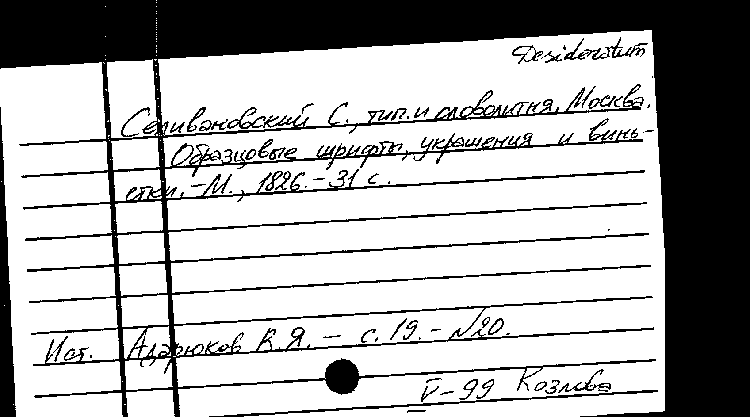 Desideratum
Селивановский С., тип. и словолитня, Москва.
Образцовые шрифты, украшения и винь-
етки. - М., 1826. - 31 с.
Ист. Адарюков В.Я. - с. 19. - №20.
V-99 Козлова